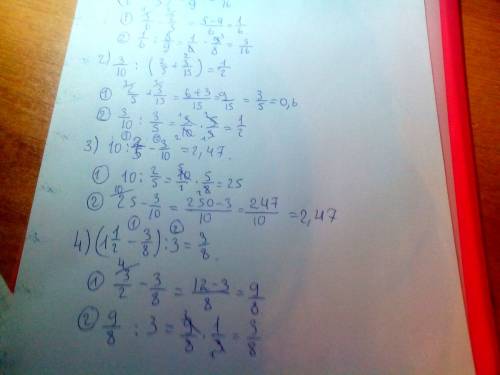 ① 5/6 - 3/2 = 5-9/6 = 1/6
② 1/6 : 8/9 = 1/6 · 9/8 = 3/16
2) 3/10 : (2/5 + 3/15) = 1/2
① 2/5 + 3/15 = 6+3/15 = 9/15 = 3/5 = 0,6
② 3/10 : 3/5 = 3/10 · 5/3 = 1/2
3) 10 : 2/5 - 3/10 = 2,47.
① 10 : 2/5 = 10/1 · 5/2 = 25
② 25 - 3/10 = 250-3/10 = 247/10 = 2,47
4) (1 1/2 - 3/8) : 3 = 3/8.
① 3/2 - 3/8 = 12-3/8 = 9/8
② 9/8 : 3 = 9/8 · 1/3 = 3/8